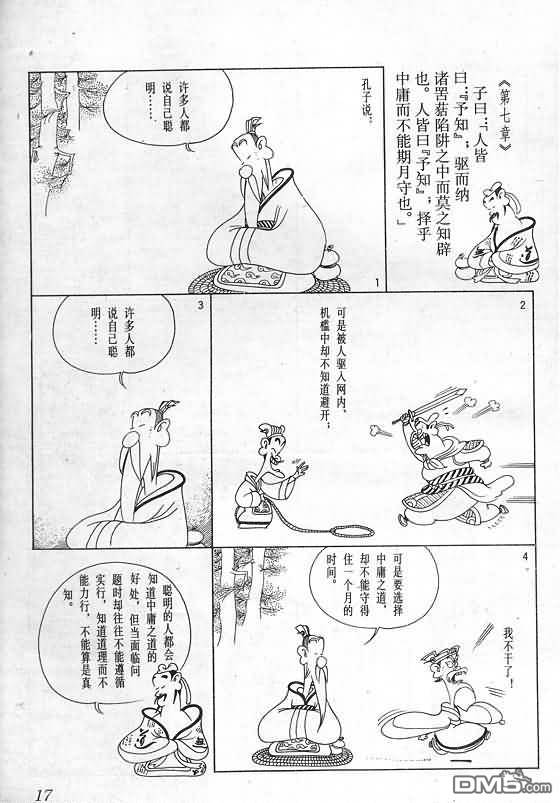 《第七章》
子曰：“人皆
曰：『予知』；驱而纳
诸罟擭陷阱之中而莫之知辟
也。人皆曰『予知』；择乎
中庸而不能期月守也。”
孔子说：
许多人都
说自己聪
明……
1
可是被人驱入网内、
机槛中却不知道避开；
2
许多人都
说自己聪
明……
3
可是要选择
中庸之道，
却不能守得
住一个月的
时间。
4
我不干了！
聪明的人都会
知道中庸之道的
好处，但当面临问
题时却往往不能遵循
实行，知道道理而不
能力行，不能算是真
知。
道
道
17
DM5.com